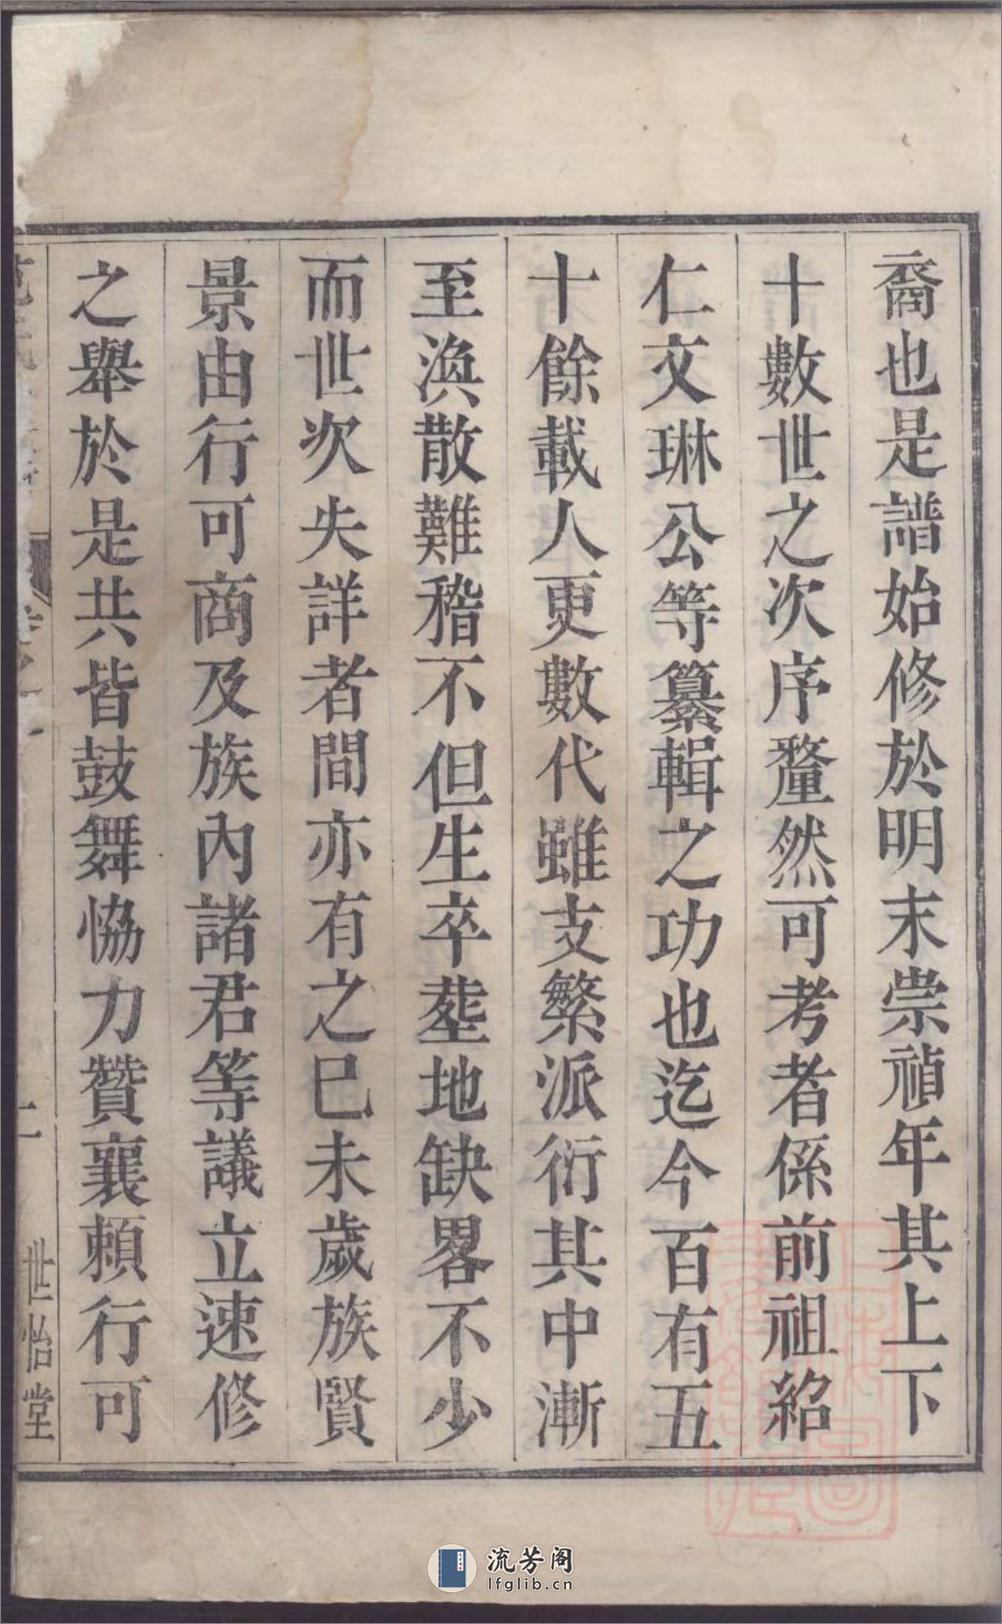 裔也是譜始修於明末崇禎年其上下
十數世之次序釐然可考者係前祖紹
仁文琳公等纂輯之功也迄今百有五
十餘載人更數代雖支繁派衍其中漸
至渙散難稽不但生卒塟地缺畧不少
而世次失詳者間亦有之巳未歲族賢
景由行可商及族內諸君等議立速修
之舉於是共皆鼓舞恊力贊襄賴行可
世怡堂
流芳阁
lfglib.cn